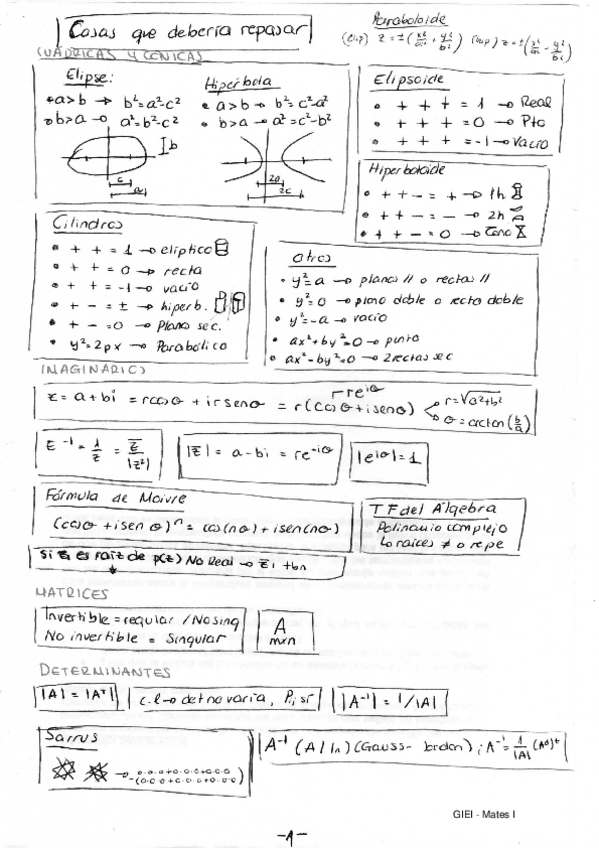 Cosas que debería repasar
Paraboloide
(Elip) z = ±(x²/a² + y²/b²) (Hip) z = ±(x²/a² - y²/b²)
CUÁDRICAS Y CÓNICAS
Elipse:
• a>b → b² = a²-c²
• b>a → a² = b²-c²
b
c
a
Hipérbola
• a>b → b² = c²-a²
• b>a → a² = c²-b²
2a
2c
Elipsoide
• + + + = 1 → Real
• + + + = 0 → Pto
• + + + = -1 → Vacío
Hiperboloide
• + + - = + → 1h
• + + - = - → 2h
• + + - = 0 → Cono
Cilindros
• + + = 1 → elíptico
• + + = 0 → recta
• + + = -1 → vacío
• + - = ± → hiperb.
• + - = 0 → Planos sec.
• y² = 2px → Parabólico
otros
• y² = a → planos // o rectas //
• y² = 0 → plano doble o recta doble
• y² = -a → vacío
• ax² + by² = 0 → punto
• ax² - by² = 0 → 2 rectas sec
IMAGINARIOS
re^iθ
z = a + bi = r cos θ + i r sen θ = r(cos θ + i sen θ)
r = √a²+b²
θ = arctan(b/a)
z⁻¹ = 1/z = z̄/|z²|
|z̄| = a - bi = re^-iθ
|e^iθ| = 1
Fórmula de Moivre
(cos θ + i sen θ)ⁿ = cos(nθ) + i sen(nθ)
TF del Álgebra
Polinomio complejo
↳ raíces ≠ o repe
Si z₁ es raíz de p(z) No Real → z̄₁ tbn
MATRICES
Invertible = regular / No sing
No invertible = Singular
A
mxn
DETERMINANTES
|A| = |Aᵗ|
c.l → det no varía, Pi sí
|A⁻¹| = 1/|A|
Sarrus
A⁻¹ (A|In) (Gauss-Jordan) ; A⁻¹ = 1/|A| (Aᵈ)ᵗ
GIEI - Mates I
-1-